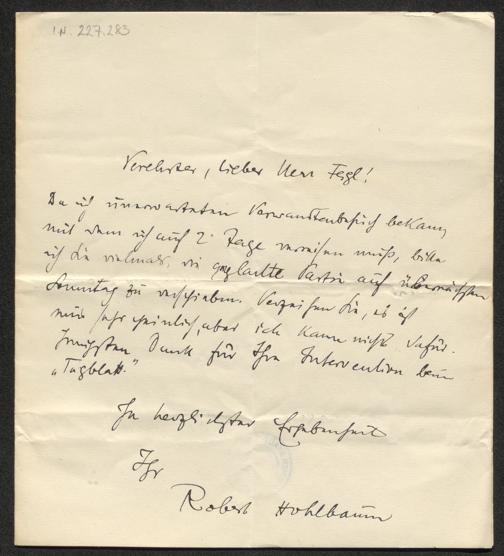 I.N. 227.283
Verehrter, lieber Herr Feigl!
Da ich unerwarteten Verwandtenbesuch bekam,
mit dem ich auf 2 Tage verreisen muß, bitte
ich Sie vielmals, die geplante Partie auf übernächsten
Sonntag zu verschieben. Verzeihen Sie, es ist
mir sehr peinlich, aber ich kann nichts dafür.
Innigsten Dank für Ihre Intervention beim
„Tagblatt."
In herzlichster Ergebenheit
Ihr
Robert Hohlbaum